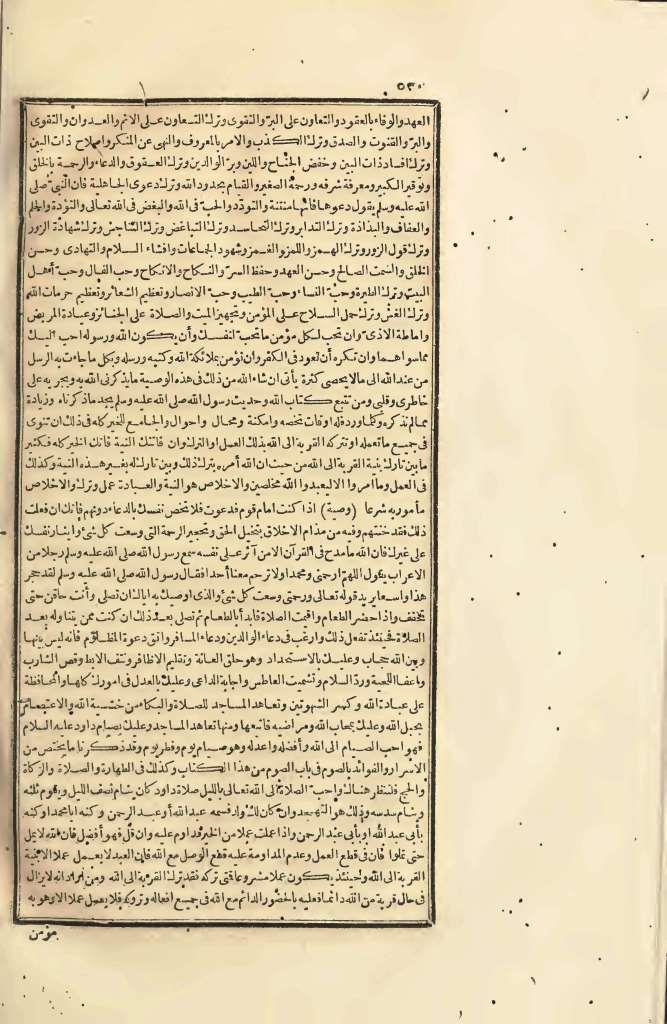 ٥٣٠
العهد والوفاء بالعقود والتعاون على البر والتقوى وترك التعاون على الاثم والعدوان والتقوى
والبر والقنوت والصدق وترك الكذب والامر بالمعروف والنهى عن المنكر واصلاح ذات البين
وترك افساد ذات البين وخفض الجناح واللين وبر الوالدين وترك العقوق والدعاء والرحمة بالخلق
وتوقير الكبير ومعرفة شرفه ورحمة الصغير والقيام بحدود الله وترك دعوى الجاهلية فان النبي صلى
الله عليه وسلم يقول دعوها فانها منتنة والتودد والحب فى الله والبغض فى الله تعالى والتؤدة والحلم
والعفاف والبذاذة وترك التدابر وترك التحاسد وترك التباغض وترك التناجش وترك شهادة الزور
وترك قول الزور وترك الهمز واللمز والغمز وشهود الجماعات وافشاء السلام والتهادى وحسن
الخلق والسمت الصالح وحسن العهد وحفظ السر والنكاح والانكاح وحب الفال وحب أهل
البيت وترك الطيرة وحب النساء وحب الطيب وحب الانصار وتعظيم الشعائر وتعظيم حرمات الله
وترك الغش وترك حمل السلاح على المؤمن وتجهيز الميت والصلاة على الجنائز وعيادة المريض
واماطة الاذى وان تحب لكل مؤمن ما تحب لنفسك وأن يكون الله ورسوله احب اليك
مما سواهما وان تكره أن تعود فى الكفر وان تؤمن بملائكة الله وكتبه ورسله وبكل ما جاءت به الرسل
من عند الله الى ما لا يحصى كثرة يأتى ان شاء الله من ذلك فى هذه الوصية ما يذكرنى الله به ويجريه على
خاطرى وقلبى ومن تتبع كتاب الله وحديث رسول الله صلى الله عليه وسلم يجد ما ذكرناه وزيادة
مما لم نذكره وكلما ورد فله اوقات تخصه وامكنة ومحال واحوال والجامع للخير كله فى ذلك ان تنوى
فى جميع ما تعمله او تتركه القربة الى الله بذلك العمل او الترك وان فاتتك النية فاتك الخير كله فكثير
ما بين تارك بنية القربة الى الله من حيث ان الله أمره بترك ذلك وبين تارك له بغير هذه النية وكذلك
فى العمل وما امروا الا ليعبدوا الله مخلصين والاخلاص هو النية والعبادة عمل وترك والاخلاص
مأمور به شرعا (وصية) اذا كنت امام قوم فدعوت فلا تخص نفسك بالدعاء دونهم فانك ان فعلت
ذلك فقد خنتهم وفيه من مذام الاخلاق بتبخيل الحق وتحجير الرحمة التى وسعت كل شئ وايثار نفسك
على غيرك فان الله ما مدح فى القرآن الا من آثر على نفسه سمع رسول الله صلى الله عليه وسلم رجلا من
الاعراب يقول اللهم ارحمنى ومحمدا ولا ترحم معنا أحدا فقال رسول الله صلى الله عليه وسلم لقد حجر
هذا واسعا يريد قوله تعالى ورحمتى وسعت كل شئ والذى اوصيك به اياك ان تصلى وأنت حاقن حتى
تخفف واذا حضر الطعام واقيمت الصلاة فابدأ بالطعام ثم تصلى بعد ذلك ان كنت ممن يتناوله بعد
الصلاة فحينئذ تفعل ذلك وارغب فى دعاء الوالدين ودعاء المسافر واتق دعوة المظلوم فانه ليس بينها
وبين الله حجاب وعليك بالاستحداد وهو حلق العانة وتقليم الاظافر ونتف الابط وقص الشارب
واعفاء اللحية ورد السلام وتشميت العاطس واجابة الداعى وعليك بالعدل فى امورك كلها والمحافظة
على عبادة الله وكسر الشهوتين وتعاهد المساجد للصلاة والبكاء من خشية الله والاعتصام
بحبل الله وعليك بمحاب الله ومراضيه فاتبعها ومنها تعاهد المساجد وعليك بصيام داود عليه السلام
فهو احب الصيام الى الله وأفضله واعدله وهو صيام يوم وفطر يوم وقد ذكرنا ما يختص من
الاسرار والفوائد بالصوم فى باب الصوم من هذا الكتاب وكذلك فى الطهارة والصلاة والزكاة
والحج فلتنظر هناك واحب الصلاة الى الله تعالى بالليل صلاة داود كان ينام نصف الليل ويقوم ثلثه
وينام سدسه وذلك هو التهجد وان كان لك ولد فسمه عبد الله أو عبد الرحمن وكنه ابا محمد او كنه
بأبى عبد الله او بأبى عبد الرحمن واذا عملت عملا من الخير فداوم عليه وان قل فهو أفضل فان الله لا يمل
حتى تملوا فان فى قطع العمل وعدم المداومة عليه قطع الوصل مع الله فان العبد لا يعمل عملا الا بنية
القربة الى الله وحينئذ يكون عملا مشروعا فمتى تركه فقد ترك القربة الى الله ومن اراد انه لا يزال
فى حال قربة من الله دائما فعليه بالحضور الدائم مع الله فى جميع افعاله وتروكه فلا يعمل عملا الا وهو به
مؤمن